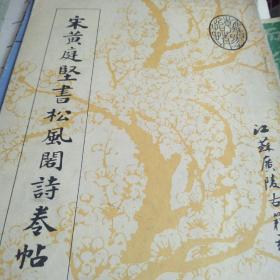 宋黄庭坚書松風閣詩卷帖
江蘇廣陵古籍